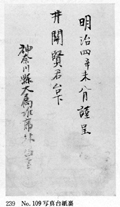 明治四辛未八月謹呈
井関賢君台下
神奈川縣大属
239 No. 109 写真台紙裏